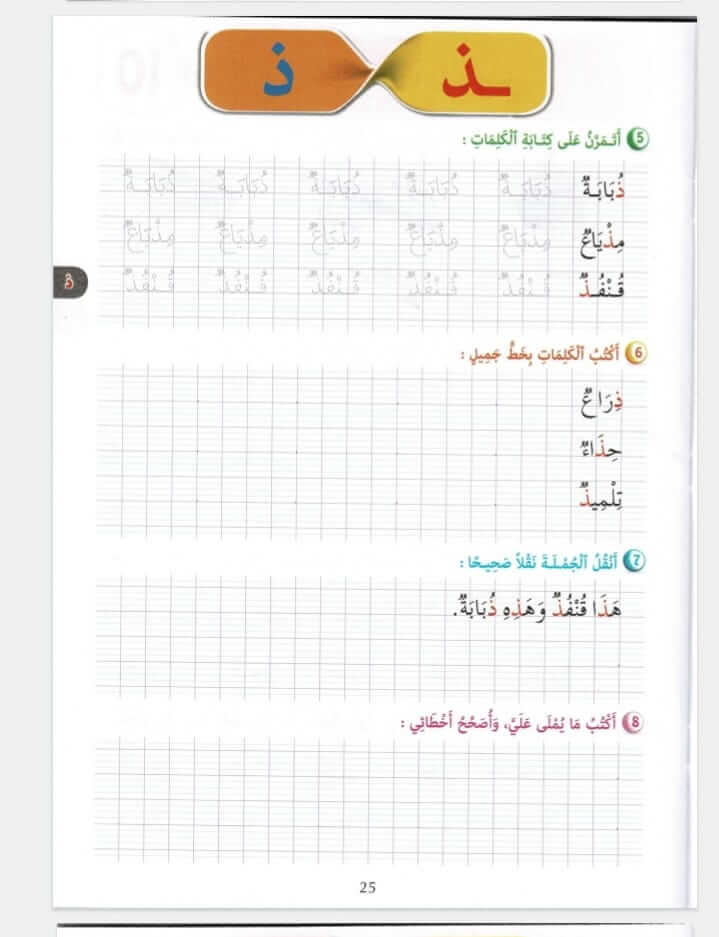 ـذ ذ
5 أَتَـمَرَّنُ عَلَى كِتَـابَةِ ٱلْكَلِمَاتِ :
ذُبَابَـةٌ ذُبَابَـةٌ ذُبَابَـةٌ ذُبَابَـةٌ ذُبَابَـةٌ ذُبَابَـةٌ
مِذْيَاعٌ مِذْيَاعٌ مِذْيَاعٌ مِذْيَاعٌ مِذْيَاعٌ مِذْيَاعٌ
قُـنْفُـذٌ قُـنْفُـذٌ قُـنْفُـذٌ قُـنْفُـذٌ قُـنْفُـذٌ قُـنْفُـذٌ
ذ
6 أَكْتُبُ ٱلْكَلِمَاتِ بِخَطٍّ جَمِيلٍ :
ذِرَاعٌ
حِذَاءٌ
تِلْمِيذٌ
7 أَنْقُلُ ٱلْجُمْـلَـةَ نَقْلاً صَحِيـحًا :
هَذَا قُنْفُذٌ وَهَذِهِ ذُبَابَةٌ.
8 أَكْتُبُ مَا يُمْلَى عَلَيَّ، وَأُصَحِّحُ أَخْطَائِي :
25